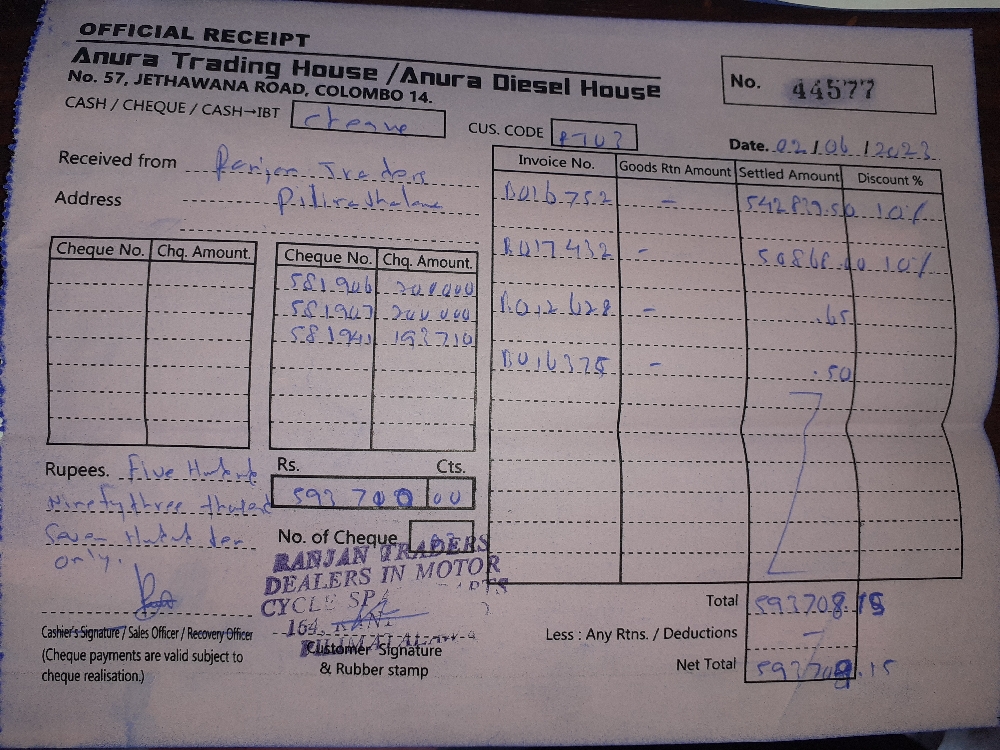 OFFICIAL RECEIPT
Anura Trading House / Anura Diesel House
No. 57, JETHAWANA ROAD, COLOMBO 14.
No. 44577
CASH / CHEQUE / CASH→IBT cheque
CUS. CODE
Date. 02/06/2023
Received from Ranjan Traders
Address
Invoice No. Goods Rtn Amount Settled Amount Discount %
B016752 - 542839.50 10%
B017432 - 50868.00 10%
B012628 - .65
B016375 - .50
Cheque No. Chq. Amount.
Cheque No. Chq. Amount.
581906 200000
581907 200000
193710
Rupees. Five
Ninety three
Seven
only.
Rs. Cts.
00
No. of Cheque
RANJAN TRADERS
DEALERS IN MOTOR
CYCLE
164,
Cashier's Signature / Sales Officer / Recovery Officer
(Cheque payments are valid subject to
cheque realisation.)
Customer Signature
& Rubber stamp
Total 593708.15
Less : Any Rtns. / Deductions -
Net Total 593708.15